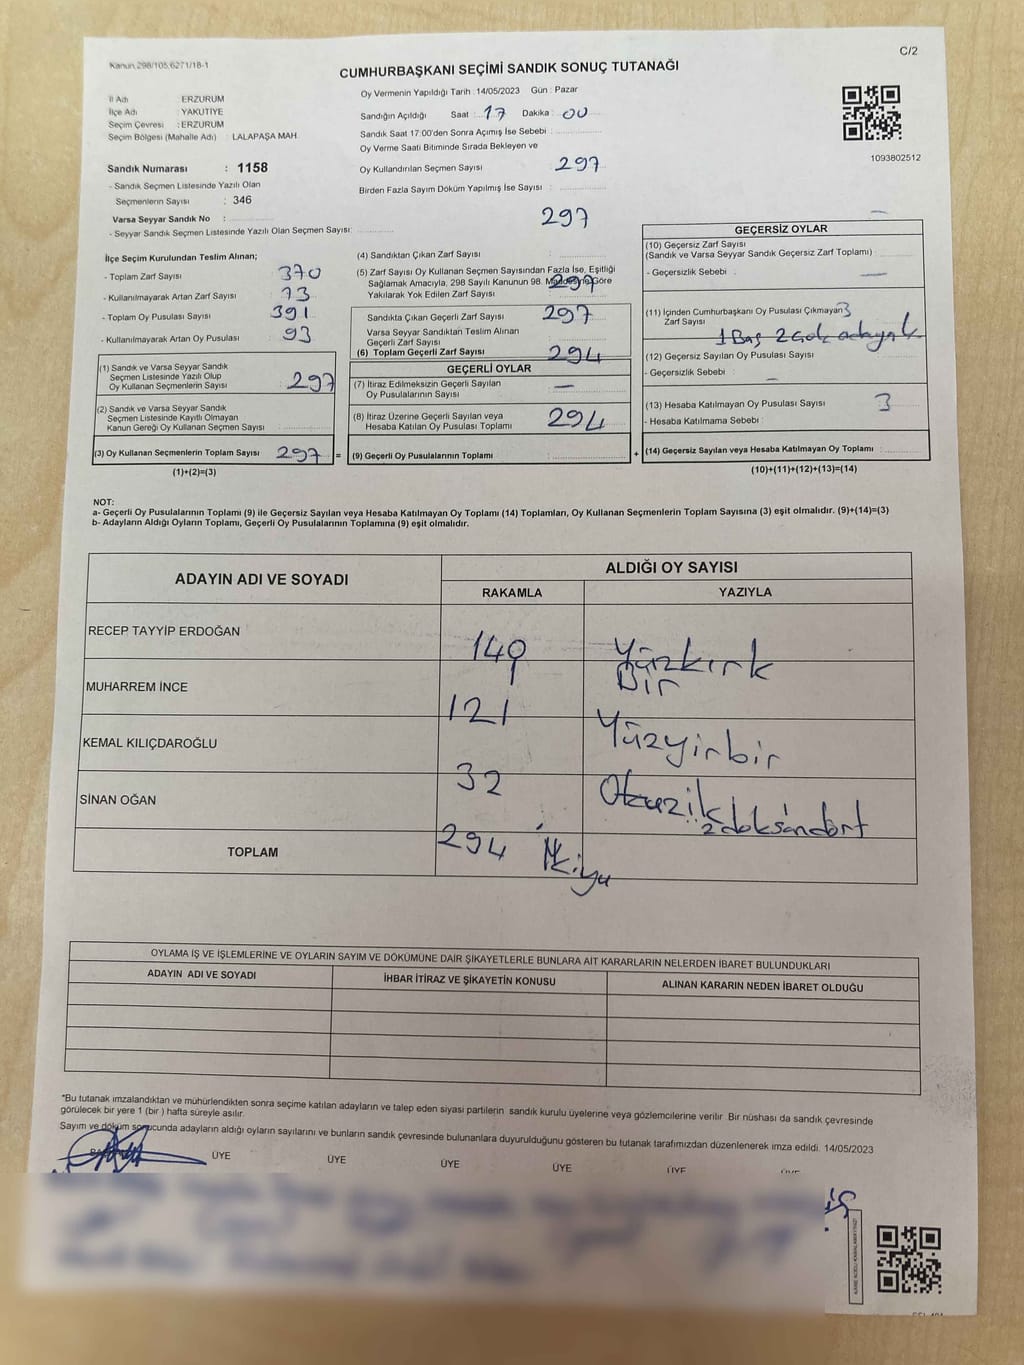 C/2
Kanun 298/105,6271/18-1
CUMHURBAŞKANI SEÇİMİ SANDIK SONUÇ TUTANAĞI
İl Adı : ERZURUM
İlçe Adı : YAKUTİYE
Seçim Çevresi : ERZURUM
Seçim Bölgesi (Mahalle Adı) : LALAPAŞA MAH.
Sandık Numarası : 1158
- Sandık Seçmen Listesinde Yazılı Olan
Seçmenlerin Sayısı : 346
Varsa Seyyar Sandık No :
- Seyyar Sandık Seçmen Listesinde Yazılı Olan Seçmen Sayısı:
Oy Vermenin Yapıldığı Tarih : 14/05/2023 Gün : Pazar
Sandığın Açıldığı Saat : 17 Dakika : 00
Sandık Saat 17:00'den Sonra Açımış İse Sebebi :
Oy Verme Saati Bitiminde Sırada Bekleyen ve
Oy Kullandırılan Seçmen Sayısı 297
Birden Fazla Sayım Döküm Yapılmış İse Sayısı :
297
1093802512
İlçe Seçim Kurulundan Teslim Alınan;
- Toplam Zarf Sayısı 370
- Kullanılmayarak Artan Zarf Sayısı 73
- Toplam Oy Pusulası Sayısı 391
- Kullanılmayarak Artan Oy Pusulası 93
(1) Sandık ve Varsa Seyyar Sandık
Seçmen Listesinde Yazılı Olup
Oy Kullanan Seçmenlerin Sayısı 297
(2) Sandık ve Varsa Seyyar Sandık
Seçmen Listesinde Kayıtlı Olmayan
Kanun Gereği Oy Kullanan Seçmen Sayısı
(3) Oy Kullanan Seçmenlerin Toplam Sayısı 297
(1)+(2)=(3)
(4) Sandıktan Çıkan Zarf Sayısı
(5) Zarf Sayısı Oy Kullanan Seçmen Sayısından Fazla İse, Eşitliği
Sağlamak Amacıyla, 298 Sayılı Kanunun 98. Maddesine Göre
Yakılarak Yok Edilen Zarf Sayısı
297
Sandıkta Çıkan Geçerli Zarf Sayısı 297
Varsa Seyyar Sandıktan Teslim Alınan
Geçerli Zarf Sayısı
(6) Toplam Geçerli Zarf Sayısı 294
GEÇERLİ OYLAR
(7) İtiraz Edilmeksizin Geçerli Sayılan
Oy Pusulalarının Sayısı —
(8) İtiraz Üzerine Geçerli Sayılan veya
Hesaba Katılan Oy Pusulası Toplamı 294
= (9) Geçerli Oy Pusulalarının Toplamı :
—
GEÇERSİZ OYLAR
(10) Geçersiz Zarf Sayısı
(Sandık ve Varsa Seyyar Sandık Geçersiz Zarf Toplamı) :
- Geçersizlik Sebebi : —
(11) İçinden Cumhurbaşkanı Oy Pusulası Çıkmayan 3
Zarf Sayısı
1 Boş
(12) Geçersiz Sayılan Oy Pusulası Sayısı
- Geçersizlik Sebebi : —
(13) Hesaba Katılmayan Oy Pusulası Sayısı 3
- Hesaba Katılmama Sebebi :
+ (14) Geçersiz Sayılan veya Hesaba Katılmayan Oy Toplamı :
(10)+(11)+(12)+(13)=(14)
NOT:
a- Geçerli Oy Pusulalarının Toplamı (9) ile Geçersiz Sayılan veya Hesaba Katılmayan Oy Toplamı (14) Toplamları, Oy Kullanan Seçmenlerin Toplam Sayısına (3) eşit olmalıdır. (9)+(14)=(3)
b- Adayların Aldığı Oyların Toplamı, Geçerli Oy Pusulalarının Toplamına (9) eşit olmalıdır.
ADAYIN ADI VE SOYADI ALDIĞI OY SAYISI
RAKAMLA YAZIYLA
RECEP TAYYİP ERDOĞAN
149 Yüzkırk
Bir
MUHARREM İNCE
121 Yüzyirbir
KEMAL KILIÇDAROĞLU
32 Otuziki
SİNAN OĞAN
doksandört
TOPLAM 294 İkiyü
OYLAMA İŞ VE İŞLEMLERİNE VE OYLARIN SAYIM VE DÖKÜMÜNE DAİR ŞİKAYETLERLE BUNLARA AİT KARARLARIN NELERDEN İBARET BULUNDUKLARI
ADAYIN ADI VE SOYADI İHBAR İTİRAZ VE ŞİKAYETİN KONUSU ALINAN KARARIN NEDEN İBARET OLDUĞU
*Bu tutanak imzalandıktan ve mühürlendikten sonra seçime katılan adayların ve talep eden siyasi partilerin sandık kurulu üyelerine veya gözlemcilerine verilir. Bir nüshası da sandık çevresinde
görülecek bir yere 1 (bir ) hafta süreyle asılır.
Sayım ve döküm sonucunda adayların aldığı oyların sayılarını ve bunların sandık çevresinde bulunanlara duyurulduğunu gösteren bu tutanak tarafımızdan düzenlenerek imza edildi. 14/05/2023
ÜYE ÜYE ÜYE ÜYE ÜYE ÜYE